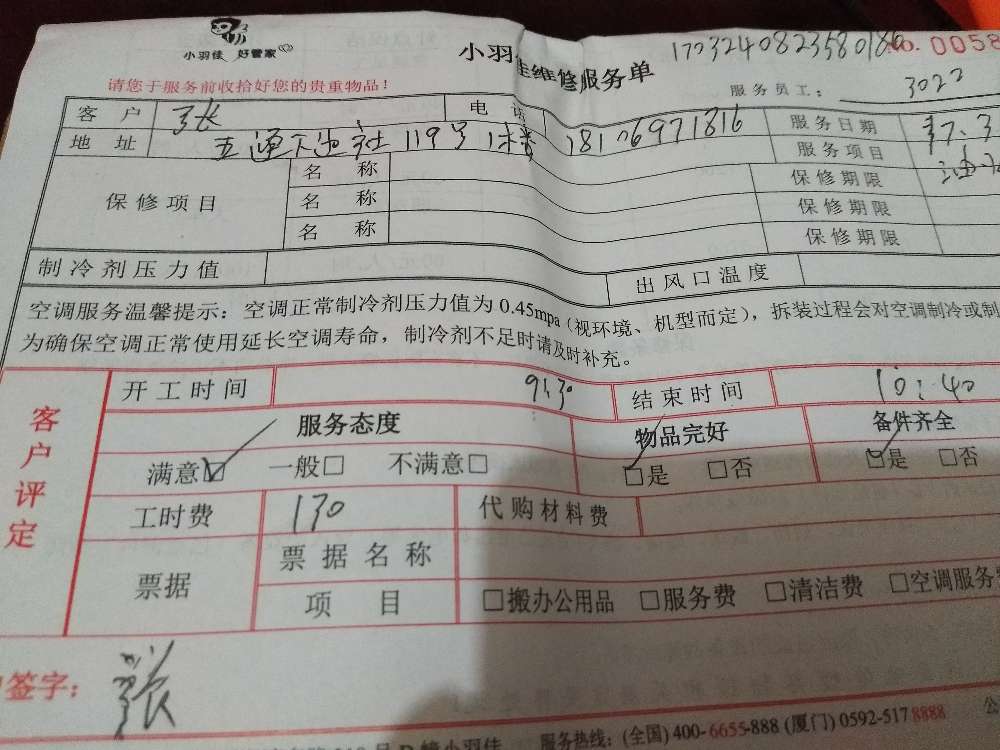 小羽佳 好管家
小羽佳维修服务单 1703240823580186 No. 0058
请您于服务前收拾好您的贵重物品！ 服务员工： 3022
客 户 张 电 话 18106971816 服务日期 17.3
地 址 五通 社119号1楼 服务项目 油
保修项目 名 称 保修期限
名 称 保修期限
名 称 保修期限
制冷剂压力值 出风口温度
空调服务温馨提示：空调正常制冷剂压力值为0.45mpa（视环境、机型而定），拆装过程会对空调制冷或制
为确保空调正常使用延长空调寿命，制冷剂不足时请及时补充。
客户评定
开工时间 9:30 结束时间 10:40
服务态度 物品完好 备件齐全
满意☑ 一般□ 不满意□ ☑是 □否 ☑是 □否
工时费 130 代购材料费
票据 票据名称
项 目 □搬办公用品 □服务费 □清洁费 □空调服务费
签字： 张
号D幢小羽佳 服务热线：(全国) 400-6655-888 (厦门) 0592-5178888 公